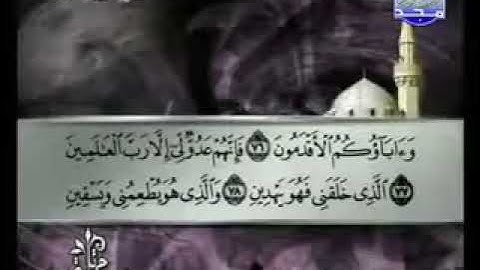 المجد
وَءَابَآؤُكُمُ ٱلۡأَقۡدَمُونَ ٧٦ فَإِنَّهُمۡ عَدُوّٞ لِّيٓ إِلَّا رَبَّ ٱلۡعَٰلَمِينَ
٧٧ ٱلَّذِي خَلَقَنِي فَهُوَ يَهۡدِينِ ٧٨ وَٱلَّذِي هُوَ يُطۡعِمُنِي وَيَسۡقِينِ